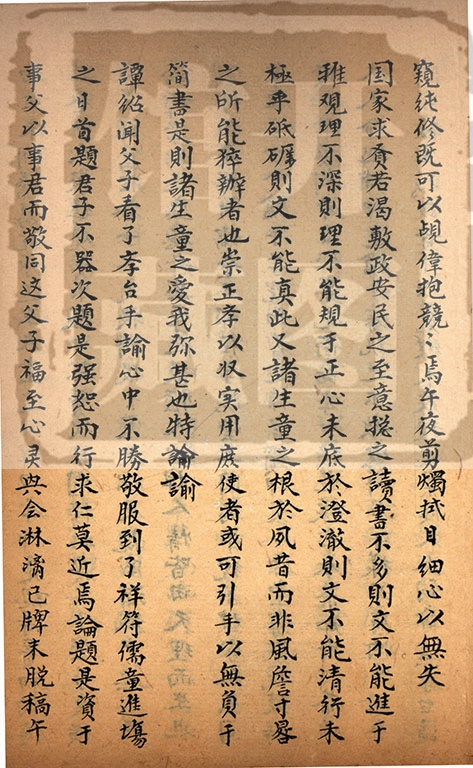 窺純修既可以覘偉抱競〻焉午夜剪燭拭目細心以無失
国家求賢若渴敷政安民之至意捴之讀書不多則文不能進于
雅观理不深則理不能規于正心未底於澄澈則文不能清行未
極乎砥礪則文不能真此又諸生童之根於夙昔而非風簷寸晷
之所能猝辦者也崇正斈以収实用庶使者或可引手以無負于
简書是則諸生童之愛我弥甚也特諭諭
譚紹聞父子看了孝台手諭心中不勝敬服到了祥符儒童進塲
之日首題君子不器次題是强恕而行求仁莫近焉論題是資于
事父以事君而敬同这父子福至心灵兴会淋漓已牌未脱稿午